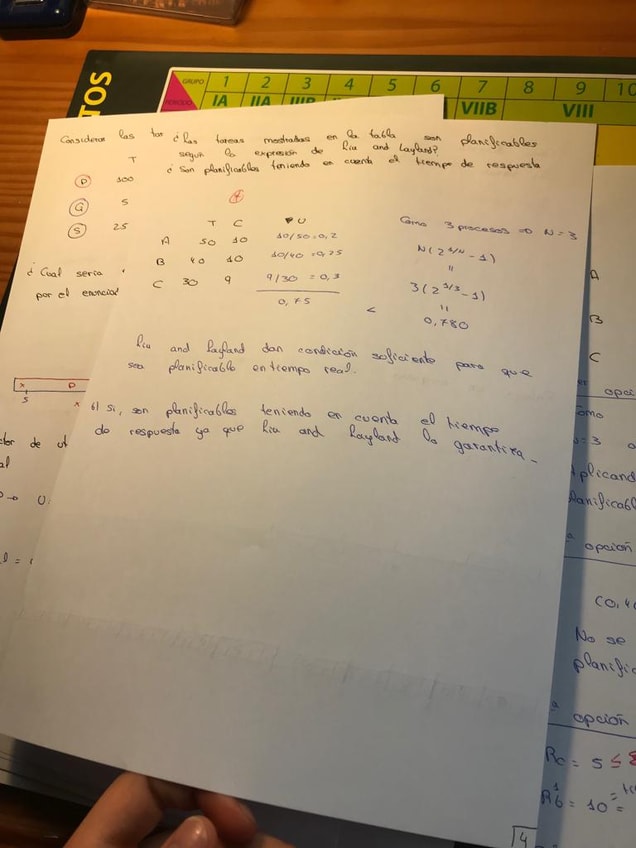 TOS
GRUPO 1 2 3 4 5 6 7 8 9 10
PERIODO IA IIA IIIB VIIB VIII
Considerar las tar ¿Las tareas mostradas en la tabla son planificables
según la expresión de Liu and Layland?
¿Son planificables teniendo en cuenta el tiempo de respuesta
T
P 100
G 5
S 25
T C U
A 50 10 10/50=0,2
B 40 10 10/40=0,25
C 30 9 9/30=0,3
0,75 <
Como 3 procesos => N=3
N(2^1/N-1)
=
3(2^1/3-1)
=
0,780
¿Cual seria
por el enunciad
Liu and Layland dan condición suficiente para que
sea planificable en tiempo real.
b) Si, son planificables teniendo en cuenta el tiempo
de respuesta ya que Liu and Layland lo garantiza.
x P
5 x
ctor de ut
al
U.
A
B
C
opci
Como
N=3
Aplicando
planificabl
ª opción
No se
planific
ª opción
Rc = 5 ≤
= 10 =
4